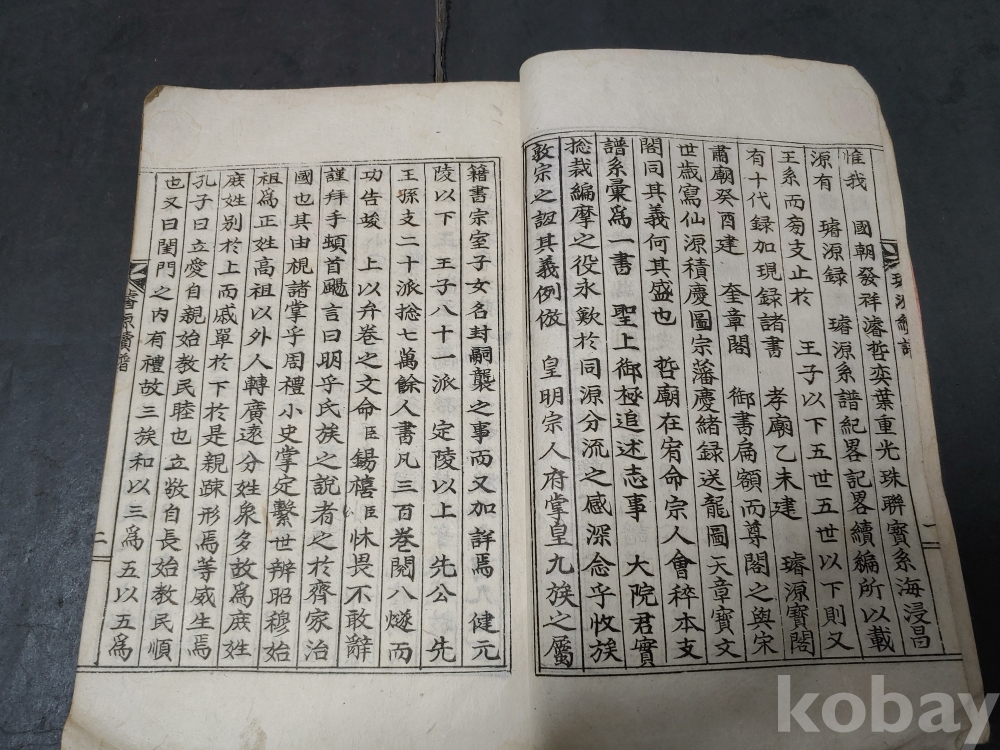 惟我 國朝發祥濬哲奕葉重光珠聯寶系海浸昌
源有 璿源錄 璿源系譜紀畧記畧續編所以載
王系而旁支止於 王子以下五世五世以下則又
有十代録加現録諸書 孝廟乙未建 璿源寶閣
肅廟癸酉建 奎章閣 御書扁額而尊閣之與宋
世歲寫仙源積慶圖宗藩慶緖録送龍圖天章寶文
閣同其義何其盛也 哲廟在宥命宗人會稡本支
譜系彙爲一書 聖上御極追述志事 大院君實
捴裁編摩之役永歎於同源分流之感深念乎收族
敦宗之誼其義例倣 皇明宗人府掌皇九族之屬
籍書宗室子女名封嗣襲之事而又加詳焉 健元
陵以下 王子八十一派 定陵以上 先公 先
王孫支二十派捴七萬餘人書凡三百巻閱八燧而
功告竣 上以弁巻之文命臣錫禧臣怵畏不敢辭
謹拜手頓首颺言曰明乎氏族之說者之於齊家治
國也其由視諸掌乎周禮小史掌定繫世辨昭穆始
祖爲正姓高祖以外人轉廣遠分姓衆多故爲庶姓
庶姓别於上而戚單於下於是親疎形焉等威生焉
孔子曰立愛自親始教民睦也立敬自長始教民順
也又曰閨門之内有禮故三族和以三爲五以五爲
二
kobay